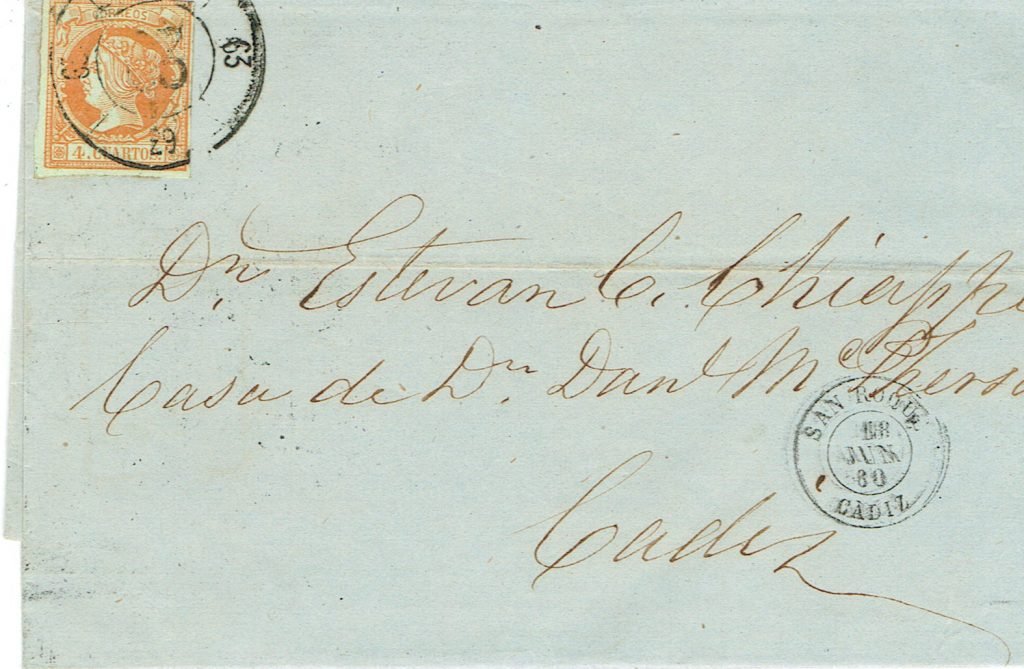 CORREOS
63
29
4. CUARTOS.
Dn. Estevan C. Chiappe
Casa de Dn Danl McPherso
SAN ROQUE
18
JUN
60
CADIZ
Cadiz